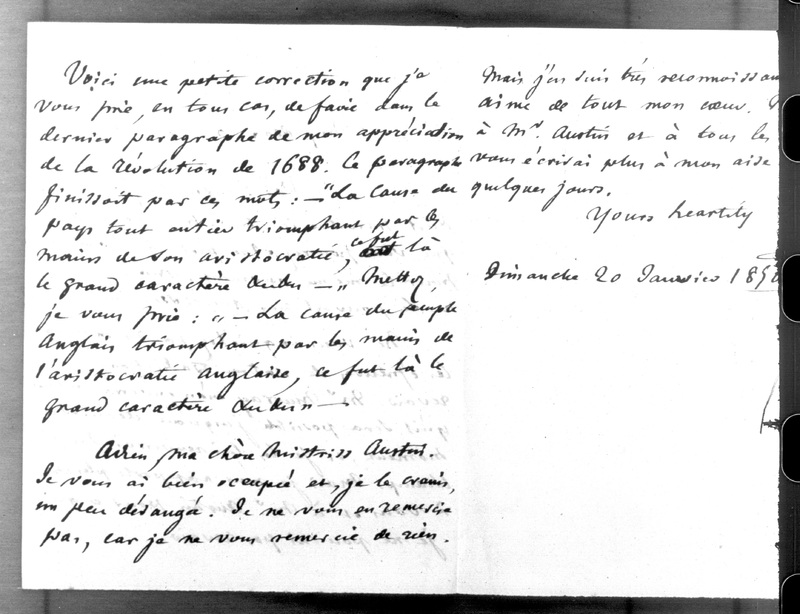 Voici une petite correction que je
vous prie, en tous cas, de faire dans le
dernier paragraphe de mon appréciation
de la révolution de 1688. Ce paragraphe
finissoit par ces mots : — "La cause du
pays tout entier triomphant par les
mains de son aristocratie, ce fut là
le grand caractère &c &c — " Mettez,
je vous prie : " — La cause du peuple
Anglais triomphant par les mains de
l'aristocratie anglaise, ce fut là le
grand caractère &c &c " —
Adieu, ma chère Mistriss Austin.
Je vous ai bien occupée et, je le crains,
un peu dérangée. Je ne vous en remercie
pas, car je ne vous remercie de rien.
Mais j'en suis très reconnoissan
aime de tout mon cœur.
à Mr. Austin et à tous les
vous écrirai plus à mon aise
quelques jours.
Yours heartily
Dimanche 20 Janvier 18